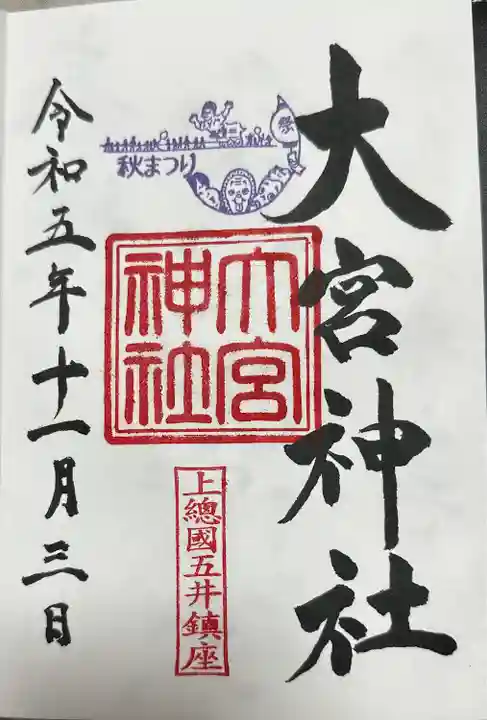 大宮神社
祭
秋まつり
大宮
神社
上總國五井鎮座
令和五年十一月三日